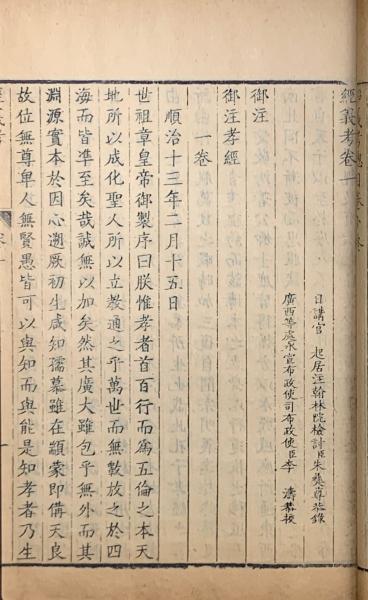 經義考卷一
日講官 起居注翰林院檢討臣朱彝尊恭錄
廣西等處承宣布政使司布政使臣李 濤恭校
御注
御注孝經
一卷
順治十三年二月十五日
世祖章皇帝御製序曰朕惟孝者首百行而爲五倫之本天
地所以成化聖人所以立教通之乎萬世而無斁放之於四
海而皆準至矣哉誠無以加矣然其廣大雖包乎無外而其
淵源實本於因心遡厥初生咸知孺慕雖在顓蒙即備天良
故位無尊卑人無賢愚皆可以與知而與能是知孝者乃生